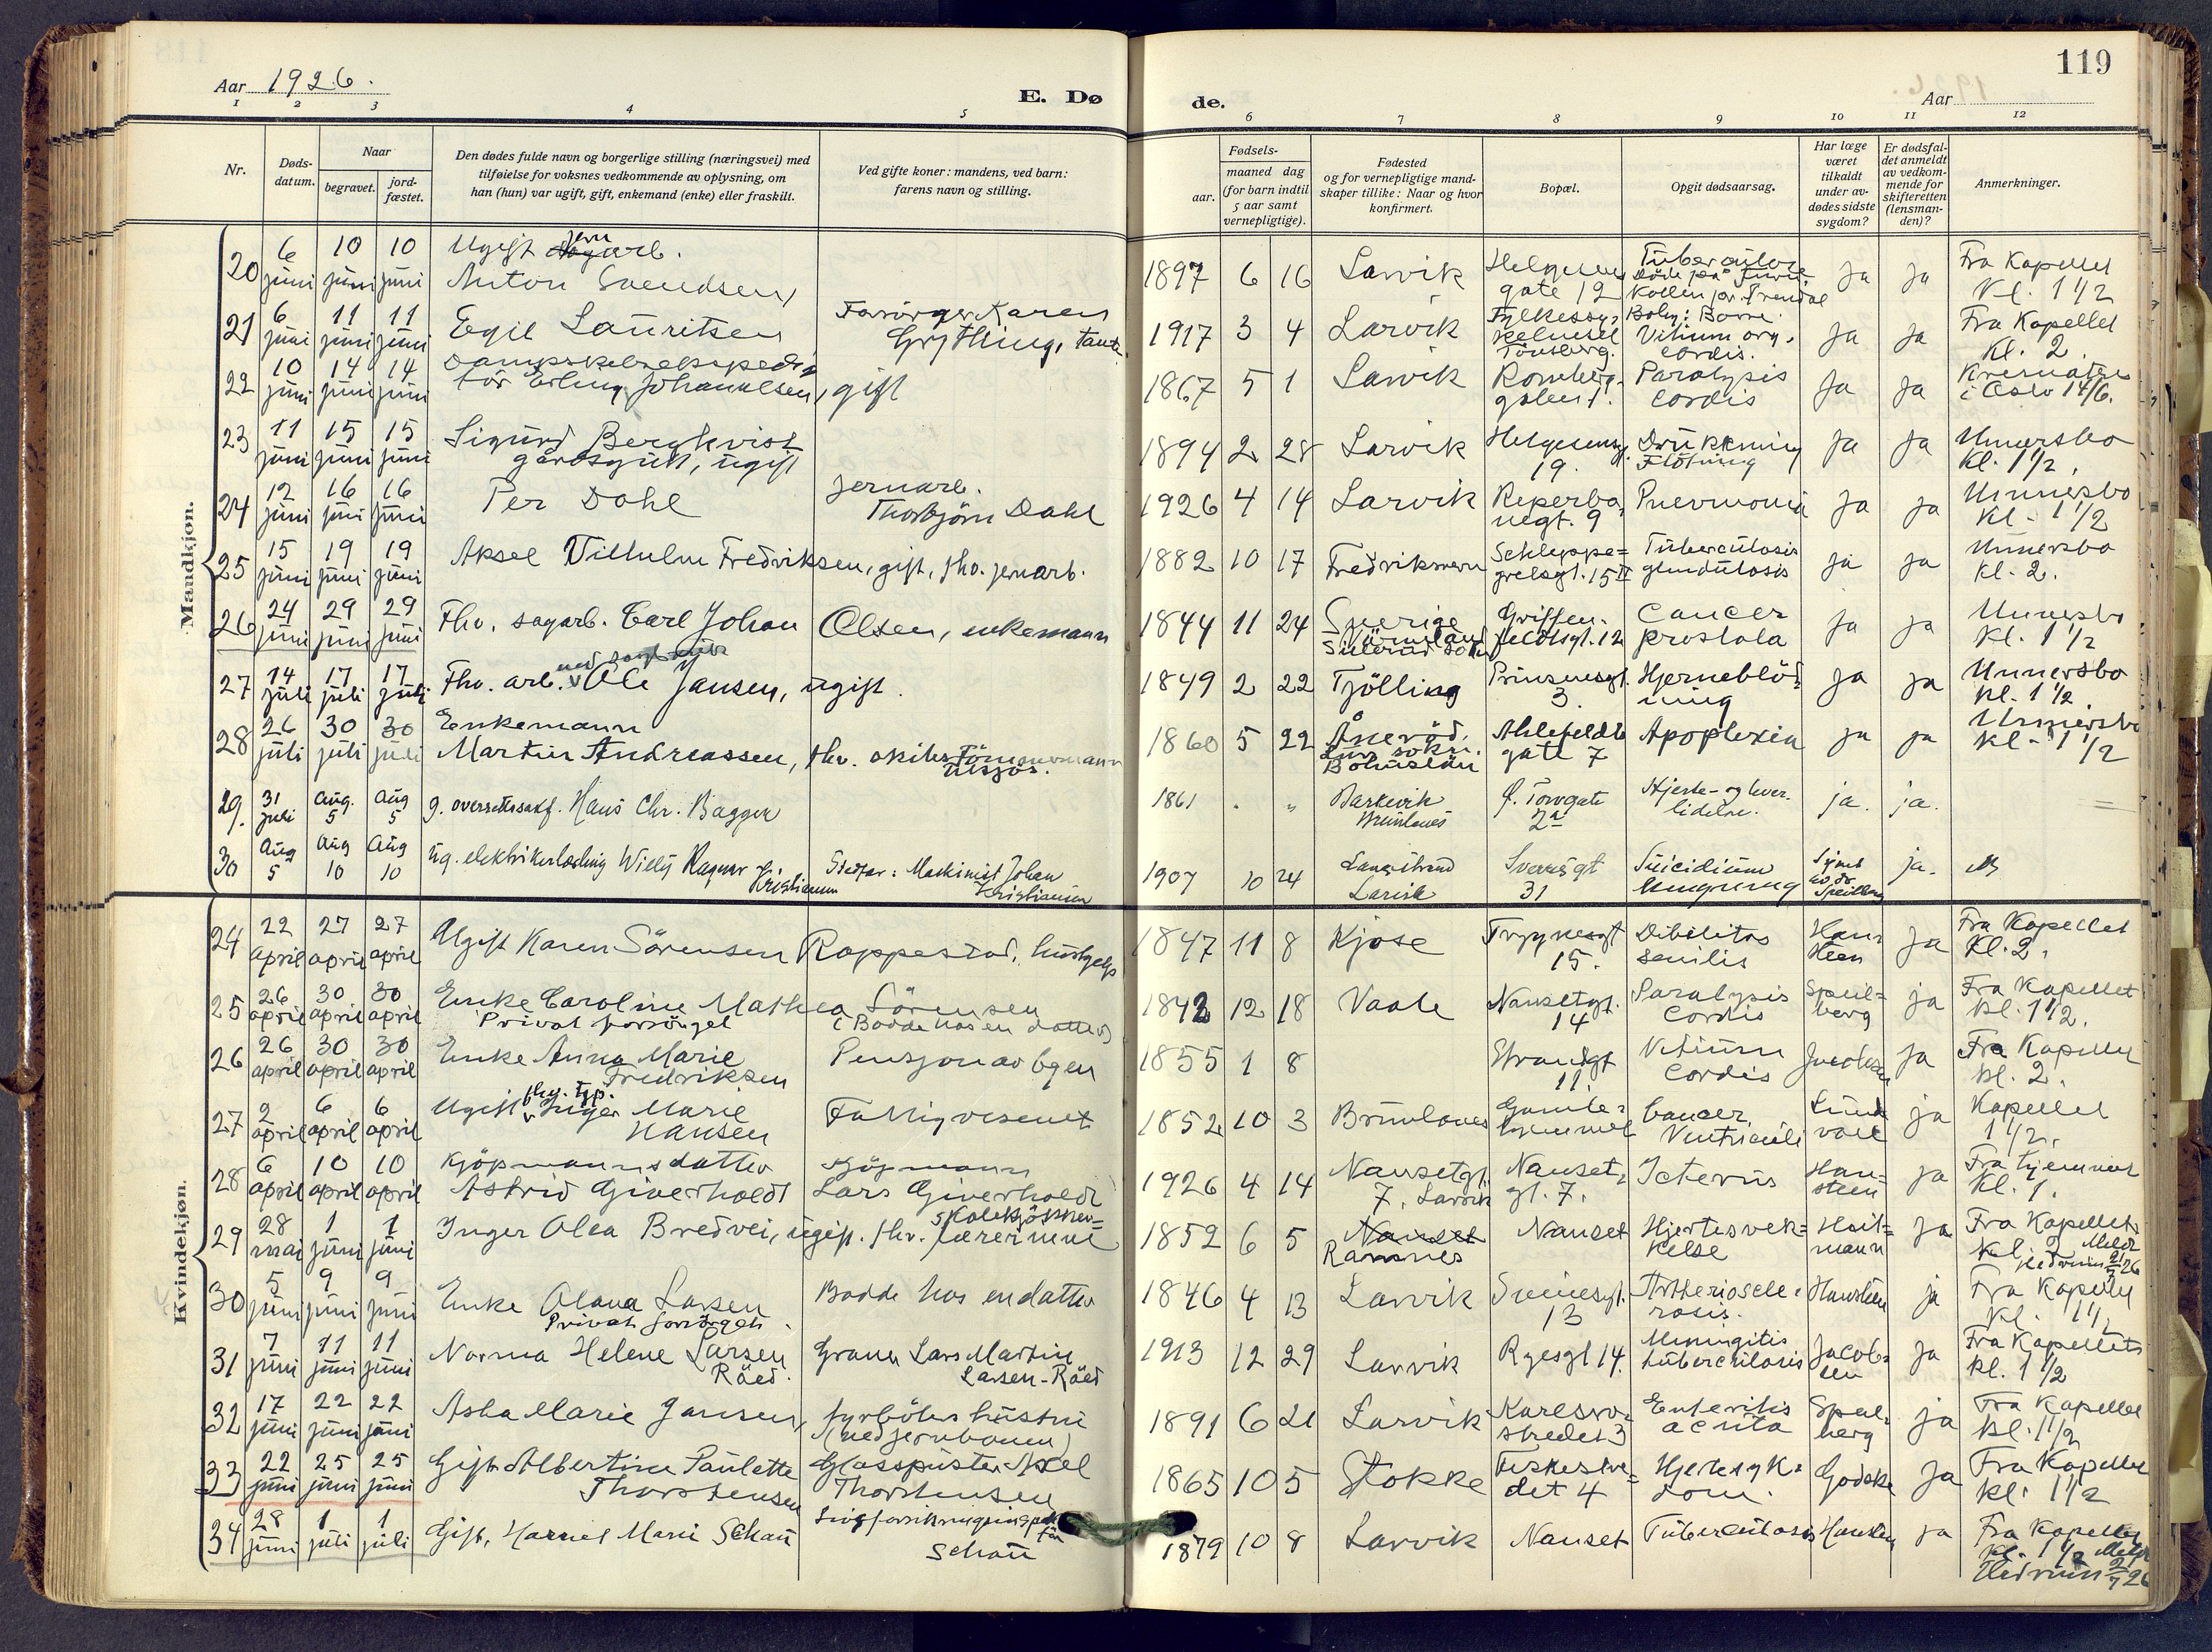 119
Aar 1926.
E. Dø
de.
Aar
1 2 3 4 5 6 7 8 9 10 11 12
Nr.
Døds-
datum.
Naar
begravet.
jord-
fæstet.
Den dødes fulde navn og borgerlige stilling (næringsvei) med
tilføielse for voksnes vedkommende av oplysning, om
han (hun) var ugift, gift, enkemand (enke) eller fraskilt.
Ved gifte koner: mandens, ved barn:
farens navn og stilling.
Fødsels-
aar.
maaned dag
(for barn indtil
5 aar samt
vernepligtige).
Fødested
og for vernepligtige mand-
skaper tillike: Naar og hvor
konfirmert.
Bopæl.
Opgit dødsaarsag.
Har læge
været
tilkaldt
under av-
dødes sidste
sygdom?
Er dødsfal-
det anmeldt
av vedkom-
mende for
skifteretten
(lensman-
den)?
Anmerkninger.
Mandkjøn.
20 6 juni 10 juni 10 juni Ugift jernarb. Anton Svendsen 1897 6 16 Larvik gate 12 ja ja Fra Kapellet Kl. 1 1/2
21 6 juni 11 juni 11 juni Egil Lauritsen Forsörger Karen Grytling, tante 1917 3 4 Larvik Tönsberg. Vitium org. cordis. ja ja Fra Kapellet Kl. 2.
22 10 juni 14 juni 14 juni Erling Johannessen, gift 1867 5 1 Larvik Paralysis cordis ja ja i Oslo 14/6.
23 11 juni 15 juni 15 juni Sigurd Bergkvist gårdsgutt, ugift 1894 2 28 Larvik 19. Drukning ja ja Unnersbo Kl. 1 1/2.
24 12 juni 16 juni 16 juni Per Dahl jernarb. Thorbjörn Dahl 1926 4 14 Larvik Reperbanegt. 9 Pnevmonia ja ja Unnersbo Kl. 1 1/2
25 15 juni 19 juni 19 juni Aksel Vilhelm Fredriksen, gift, fhv. jernarb. 1882 10 17 Fredriksvern Schleppegrelsgt. 15 II Tuberculosis glandulosis ja ja Unnersbo Kl. 2.
26 24 juni 29 juni 29 juni Fhv. sagarb. Carl Johan Olsen, enkemann 1844 11 24 Sverige Värmland Griffenfeldtsgt. 12 Cancer prostata ja ja Unnersbo Kl. 1 1/2
27 14 juli 17 juli 17 juli Fhv. arb. Ole Jansen, ugift. 1849 2 22 Tjölling Prinsensgt. 3. Hjerneblödning ja ja Unnersbo Kl. 1 1/2.
28 26 juli 30 juli 30 juli Enkemann Martin Andreassen, fhv. skibstömmermann tilsjös. 1860 5 22 Bohuslän Ahlefeldts gate 7 Apoplexia ja ja Unnersbo Kl. 1 1/2
29. 31 juli Aug. 5 Aug 5 g. Hans Chr. Bagger 1861 Barkevik Brunlanes Ø. Torvgate 2a Hjerte- og lever- lidelse. ja. ja.
30 Aug 5 Aug 10 Aug 10 ug. elektrikerlærling Willy Ragnar Kristiansen Stedfar: Maskinist Johan Kristiansen 1907 10 24 Langestrand Larvik Sverresgt 31 Suicidium ja.
Kvindekjøn.
24 22 april 27 april 27 april Ugift Karen Sörensen Rappestad, hushjelp 1847 11 8 Kjose Trygvesgt 15. Debilitas senilis Hansteen ja Fra Kapellet Kl. 2.
25 26 april 30 april 30 april Enke Caroline Mathea Sörensen Privat forsörget (Bodde hos en datter) 1842 12 18 Vaale Nansetgt. 14 Paralysis cordis Speilberg ja Fra Kapellet Kl. 1 1/2.
26 26 april 30 april 30 april Enke Anna Marie Fredriksen Pensjon av byen 1855 1 8 Strandgt 11. Vitium cordis Jacobsen ja Fra Kapellet Kl. 2.
27 2 april 6 april 6 april Ugift Inger Marie Hansen Fattigvesenet 1852 10 3 Brunlanes Gamlehjemmet Cancer Ventriculi ja Kapellet 1 1/2.
28 6 april 10 april 10 april Kjöpmannsdatter Astrid Giverholdt Kjöpmann Lars Giverholdt 1926 4 14 Nansetgt. 7. Larvik Nansetgt. 7. Icterus Hansteen ja Fra hjemmet Kl. 1.
29 28 mai 1 juni 1 juni Inger Olea Bredvei, ugift. fhv. skolekjökkenlærerinne 1859 6 5 Nanset Ramnes Nanset Hjertesvekkelse Heitmann ja Fra Kapellet Kl. 2 Meldt Hedrum 26
30 5 juni 9 juni 9 juni Enke Olava Larsen Privat forsörget. Bodde hos en datter 1846 4 13 Larvik 13 Arteriosclerosis. Hansteen ja Fra Kapellet Kl. 1 1/2
31 7 juni 11 juni 11 juni Norma Helene Larsen Råed. Larsen-Råed Lars Martin 1913 12 29 Larvik Ryesgt 14. Meningitis tuberculosis Jacobsen ja Fra Kapellet Kl. 1 1/2
32 17 juni 22 juni 22 juni Asta Marie Jansen, fyrböters hustru (ved jernbanen) 1891 6 21 Larvik Karlsrostredet 3 Enteritis acuta Speilberg ja Fra Kapellet Kl. 1 1/2
33 22 juni 25 juni 25 juni Gift Albertine Paulette Thorstensen Glasspuster Axel Thorstensen 1865 10 5 Stokke Fiskestredet 4 Hjertesykdom. Godske ja Fra Kapellet Kl. 1 1/2
34 28 juni 1 juli 1 juli Gift, Harriet Marie Schau Livsforsikringsinspektör Schau 1879 10 8 Larvik Nanset Tuberculosis Hansteen ja Fra Kapellet Kl. 1 1/2 Meldt Hedrum 2/7 26